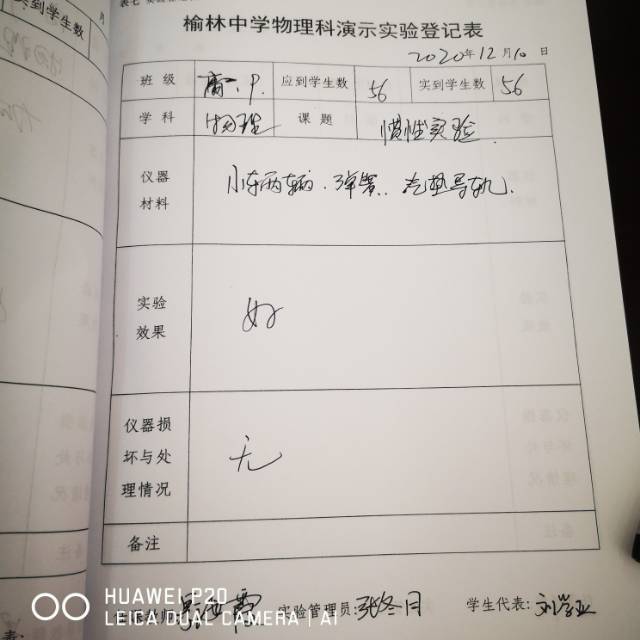 表七
实到学生数
月
榆林中学物理科演示实验登记表
2020年12月10日
班 级 高一、P. 应到学生数 56 实到学生数 56
学 科 物理 课 题 惯性实验.
仪器
材料
小车两辆. 弹簧. 气垫导轨.
实验
效果
好
仪器损
坏与处
理情况
无
备注
实验管理员:张冬月 学生代表:
HUAWEI P20
LEICA DUAL CAMERA | AI